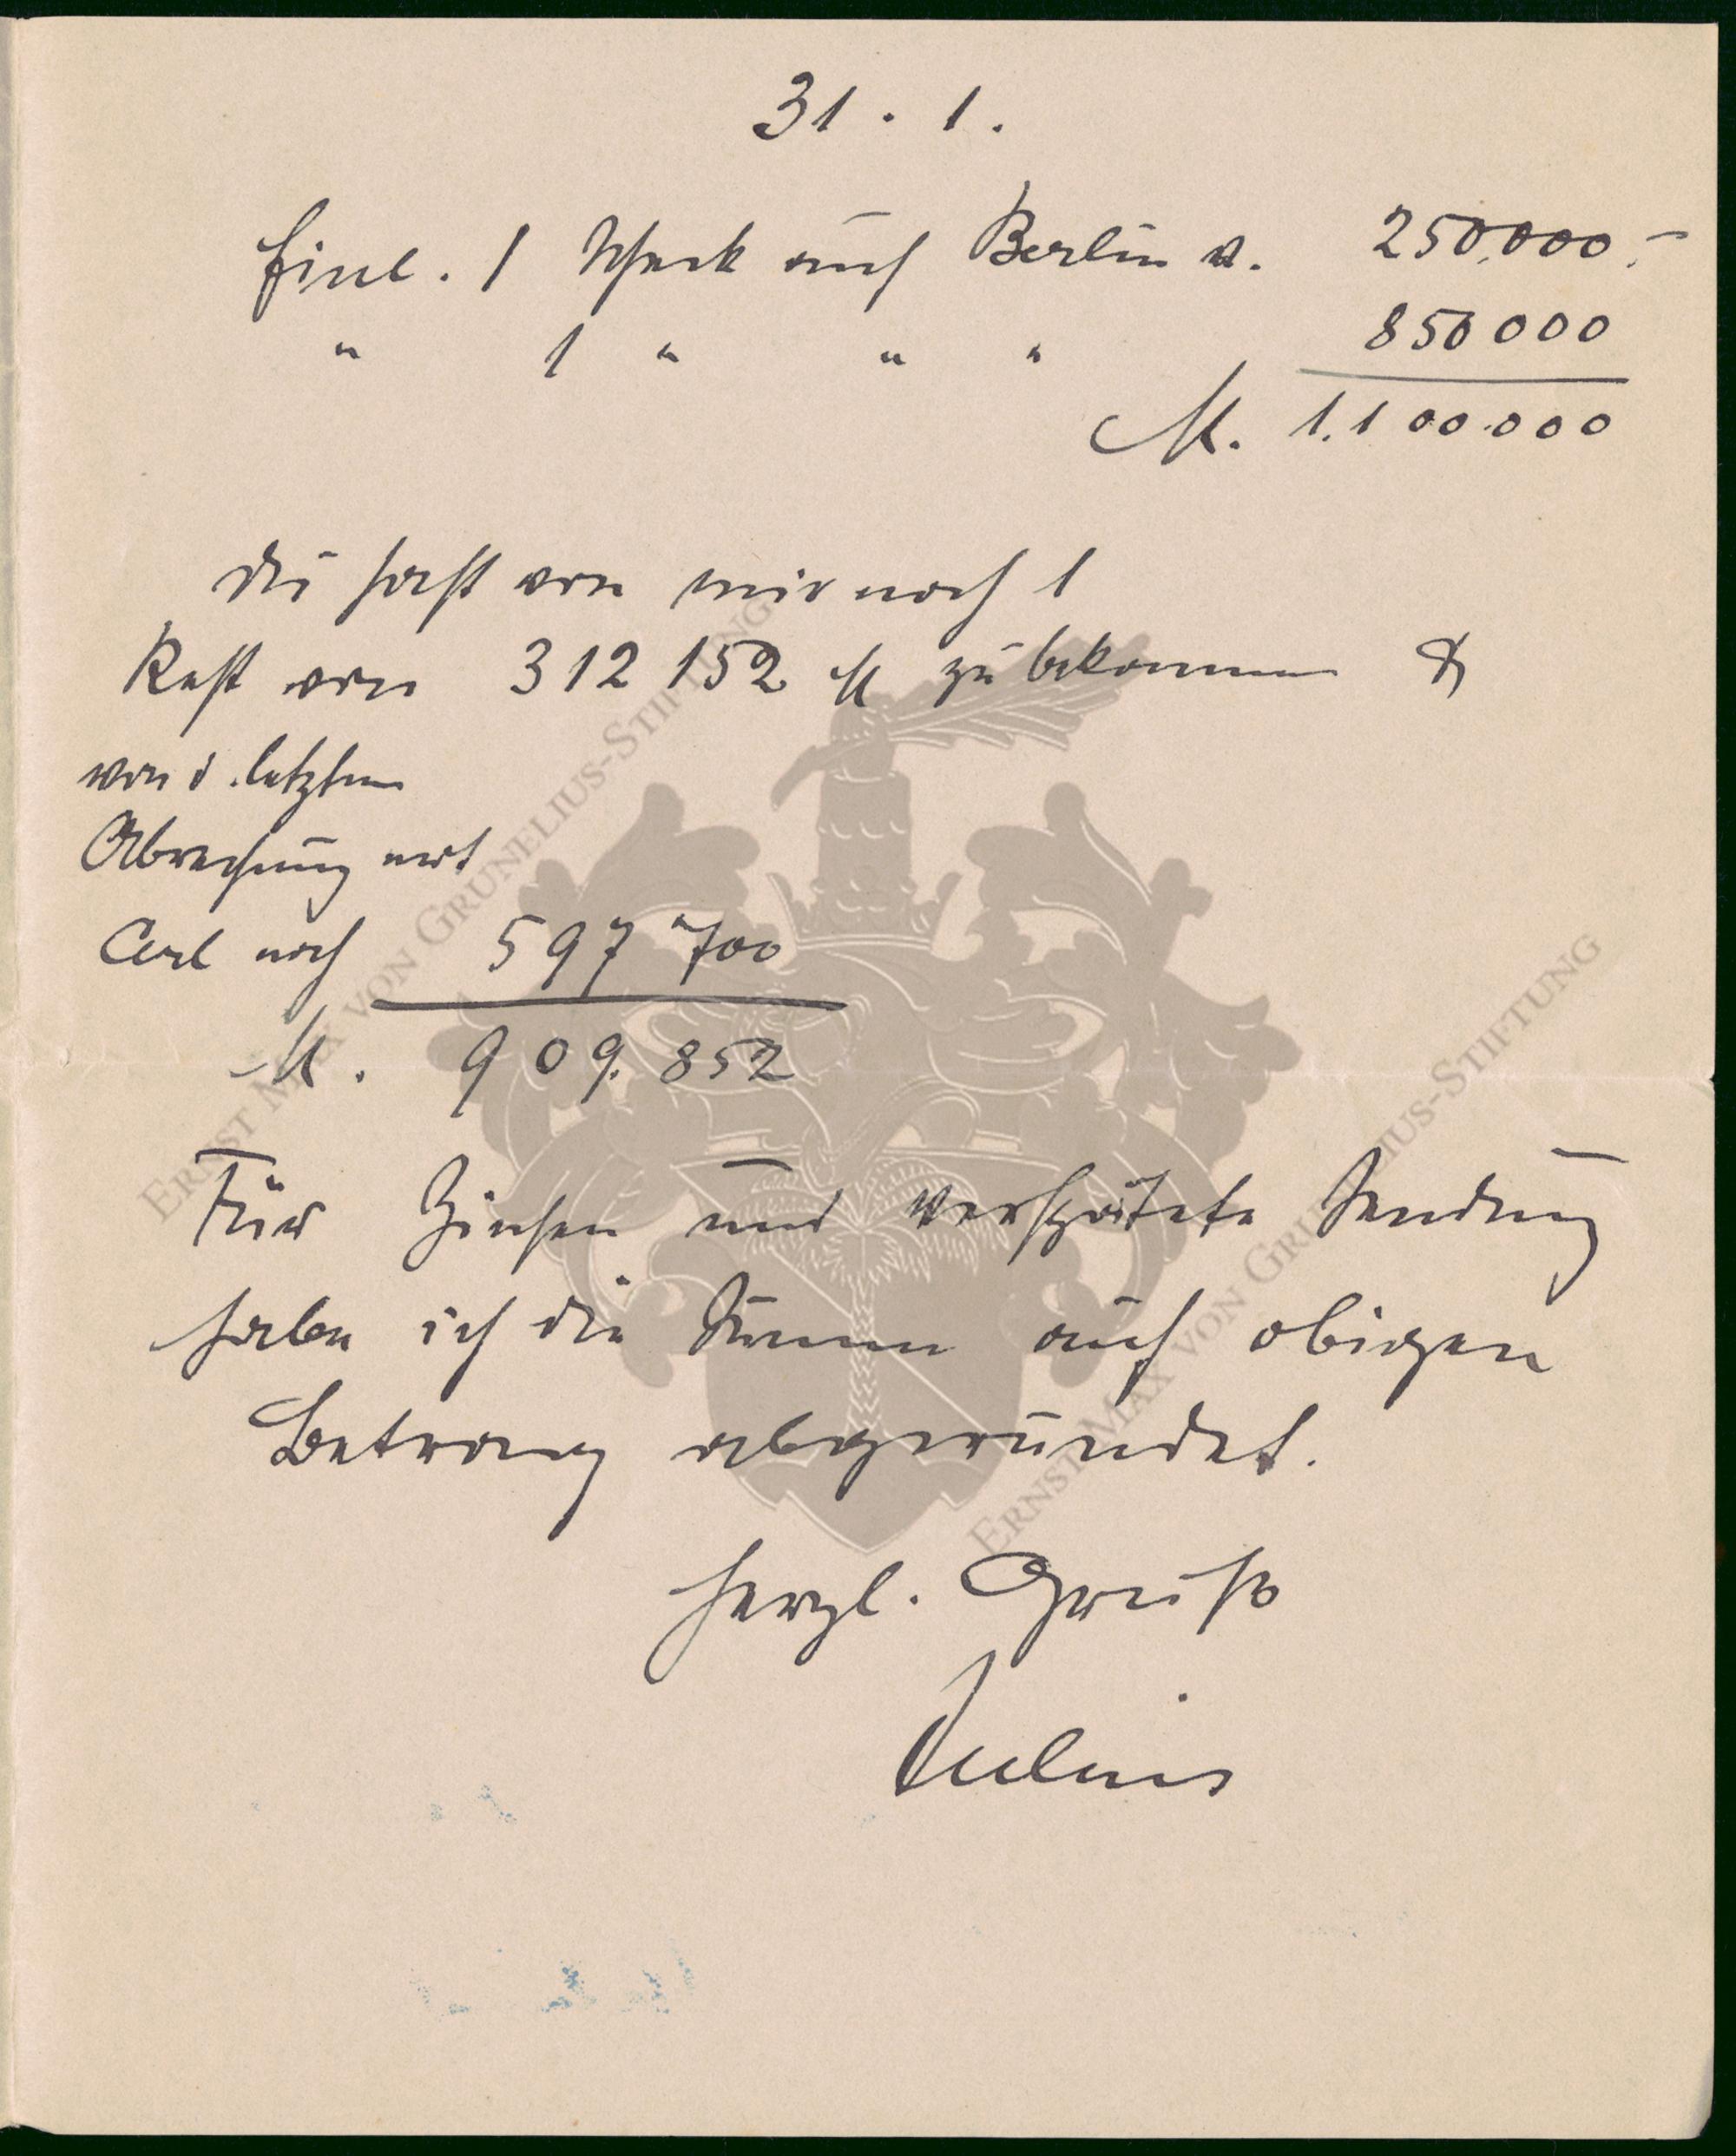 31. 1.
Einl. 1 Scheck auf Berlin v. 250.000.-
" 1 " " " 850 000
M. 1.100.000
Du hast von mir noch 1
Rest von 312 152 M zu bekommen &
von d. letzten
Abrechnung mit
Carl noch 597 700
M. 909.852
Für Zinsen und verspätete Sendung
habe ich die Summe auf obigen
Betrag abgerundet.
Herzl. Gruß
Julius
ERNST MAX VON GRUNELIUS-STIFTUNG
ERNST MAX VON GRUNELIUS-STIFTUNG